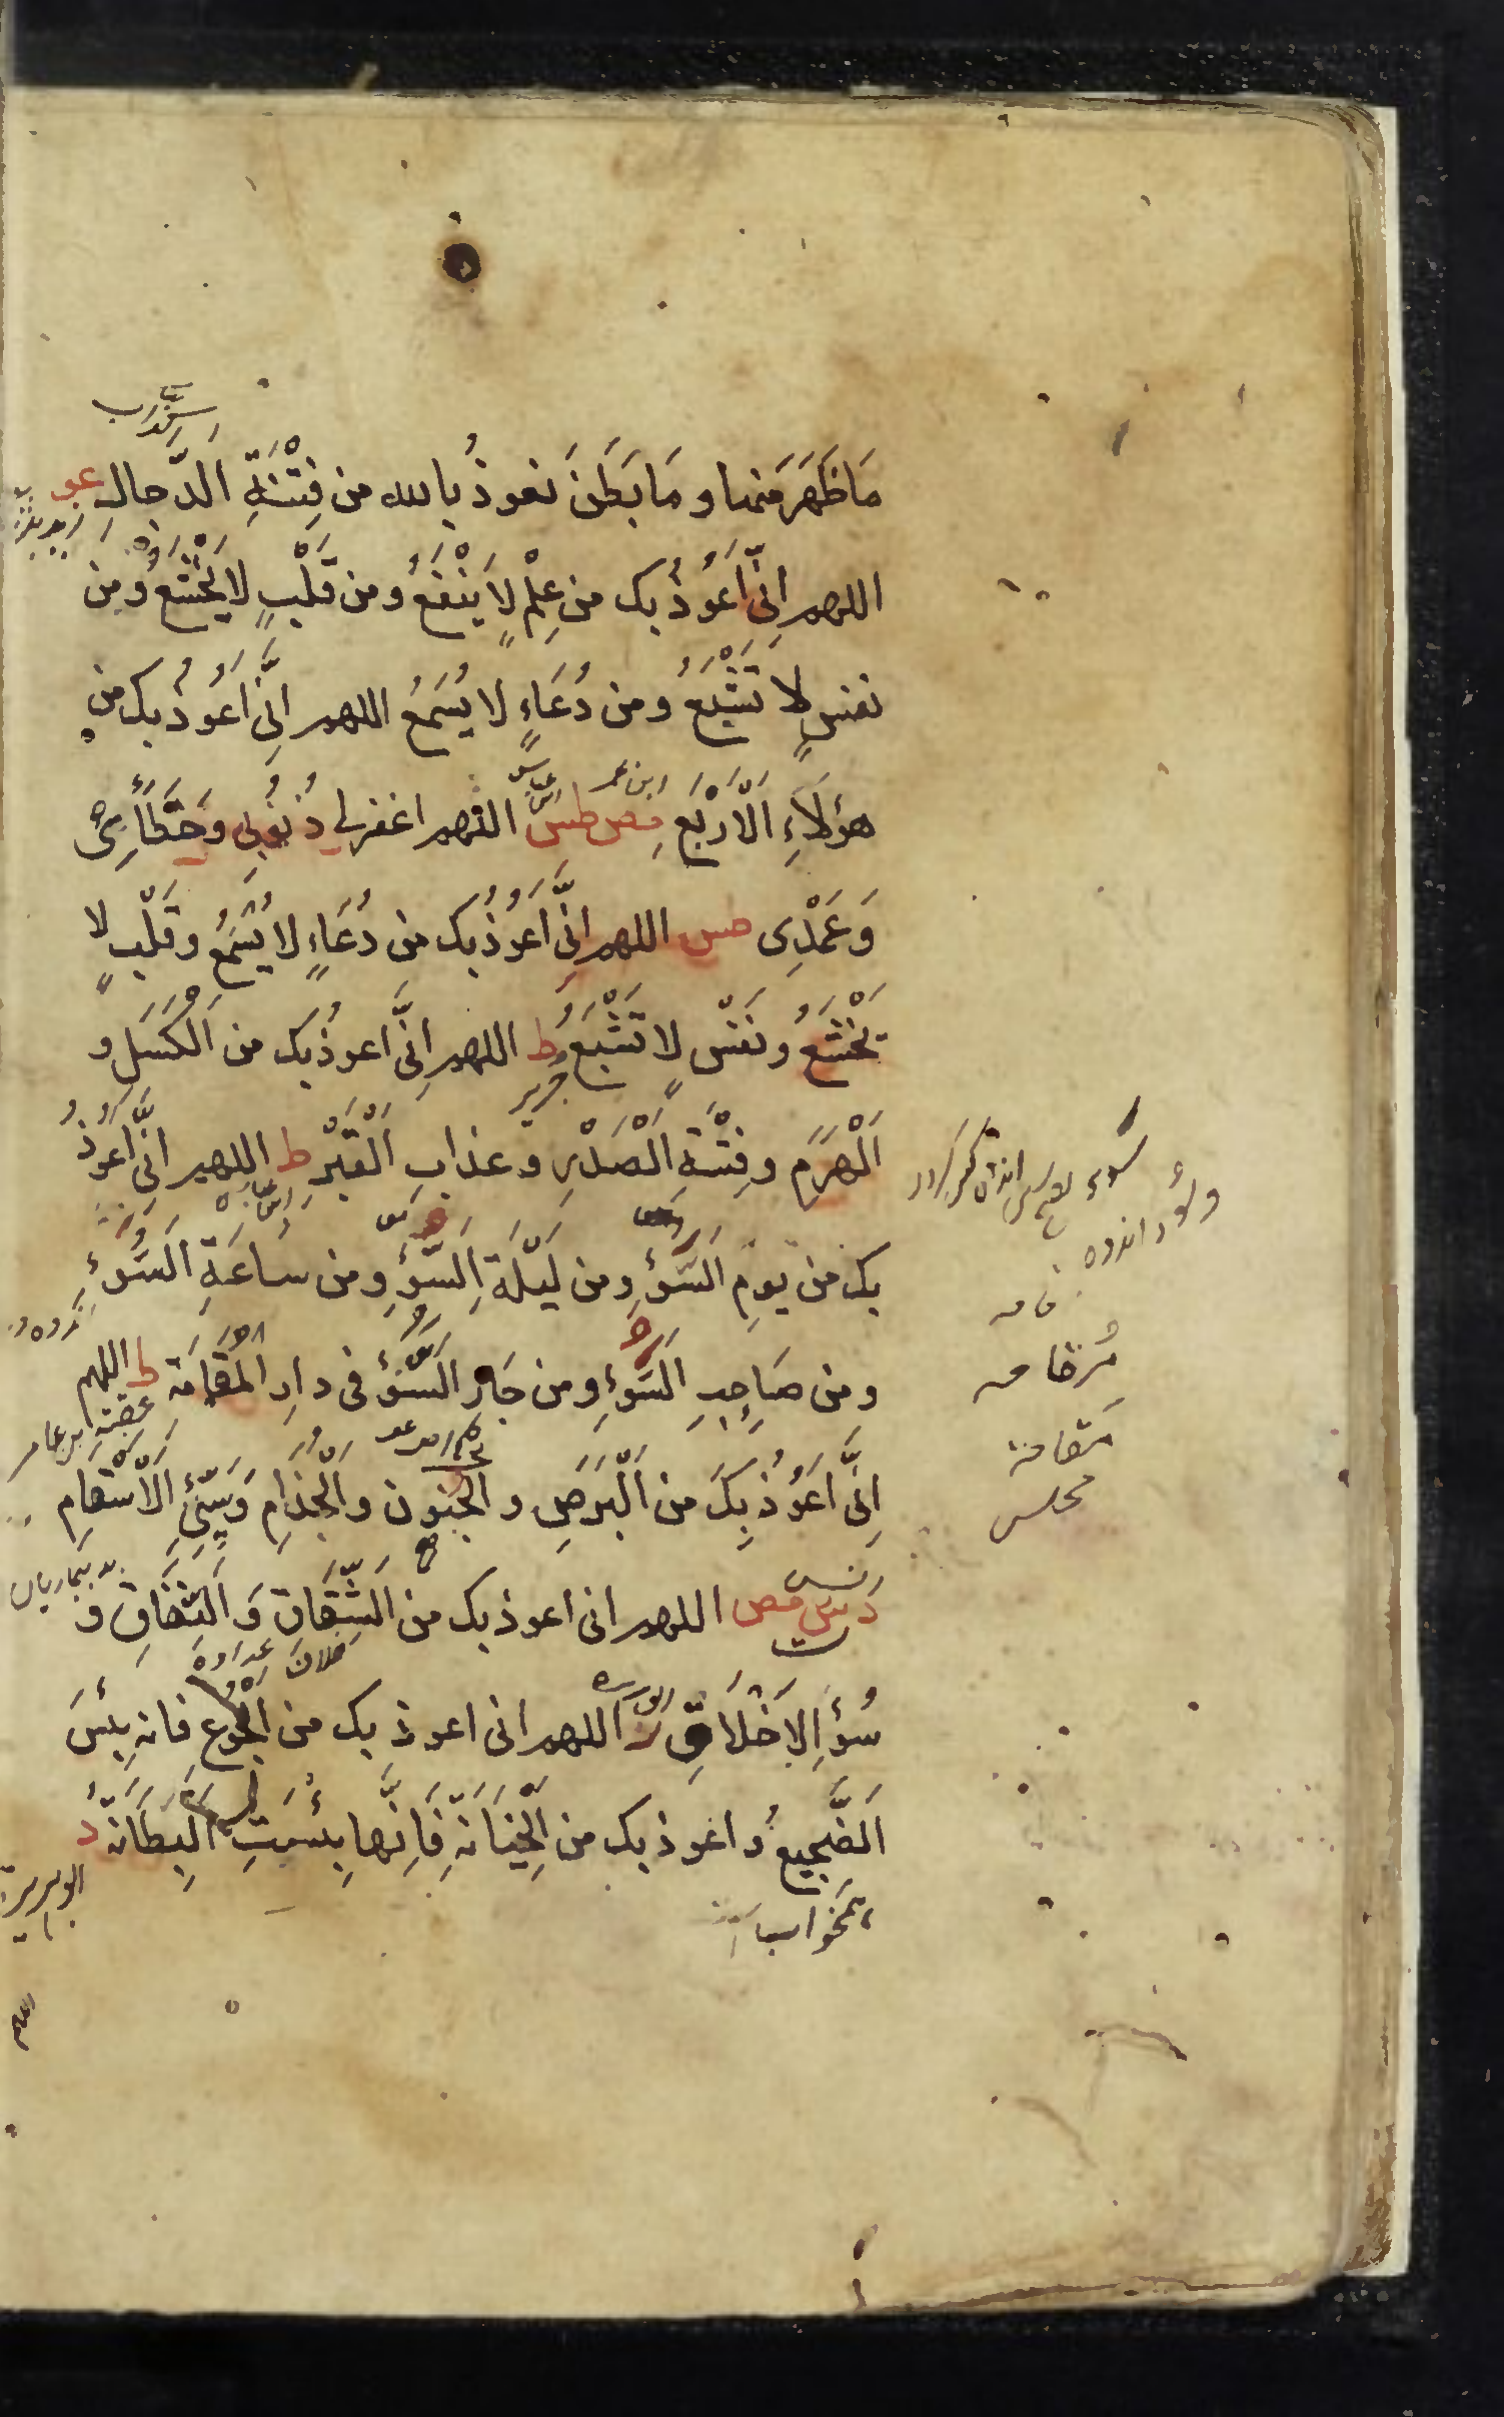 مَا ظَهَرَ مَنها و مَا بَطَنَ نعوذُ بالله من فِتْنَةِ الدَّجال عو
اللهم اِنّى اَعُوذُ بک من عِلْمٍ لاَ يَنْفَعُ ومن قَلْبٍ لا يَخْشَعُ ومن
نفسٍ لا تَشْبَعُ ومن دُعَاءٍ لا يُسْمَعُ اللهم اِنِّى اَعُوذُ بک من
ابن عمر
هؤلاَءِ الْاَرْبَعِ مص طس اللهم اغفرلى ذُنُوبِى وَخَطَائِى
وَعَمْدِى طس اللهم اِنِّى اَعُوذُ بک من دُعَاءٍ لا يُسْمَعُ وقَلْبٍ لا
يَخْشَعُ ونَفْسٍ لا تَشْبَعُ ط اللهم اِنِّى اعوذُ بک من الْكَسَلِ و
جرير
الْهَرَمِ وفِتْنَةِ الْصَدْرِ وعذابِ الْقَبْرِ ط اللهم اِنِّى اَعُوذُ
بک من يومِ السَّوْءِ ومن لَيْلَةِ السَّوْءِ ومن سَاعَةِ السَّوْءِ
ومن صَاحِبِ السَّوْءِ ومن جَارِ السَّوْءِ فى دارِ الْمُقَامَةِ ط اللهم
عقبة بن عامر
اِنِّى اَعُوذُ بِکَ من الْبَرَصِ و الجُنُون والْجُذَامِ وَسَيِّئِ الْاَسْقَامِ
بد بيماريان
د س مص اللهم انى اعوذ بک من الشِّقَاقِ وَ النِّفَاقِ و
خلاف عداوة
سُوْءِ الاَخْلَاقِ د اللهم انى اعوذ بک من الْجُوعِ فانه بِئْسَ
الضَّجِيعُ و اعوذ بک من الْخِيَانَةِ فَاِنَّها بِئْسَتِ الْبِطَانَةُ د
همخوابه
مقامه
مَقامة
مجلس